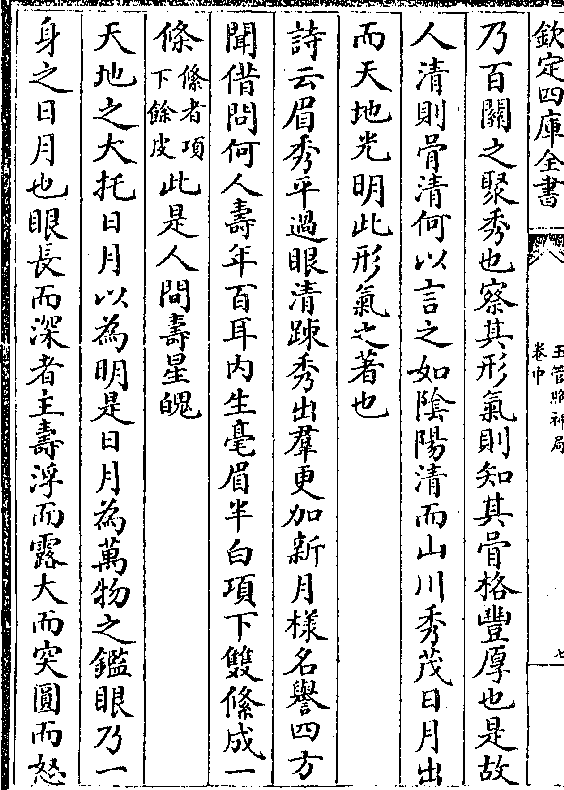 欽定四庫全書
玉管照神局
卷中
七
乃百關之聚秀也察其形氣則知其骨格豐厚也是故
人清則骨清何以言之如陰陽清而山川秀茂日月出
而天地光明此形氣之著也
詩云眉秀平過眼清踈秀出羣更加新月樣名譽四方
聞借問何人壽年百耳内生毫眉半白項下雙絛成一
絛絛者項下餘皮此是人間壽星魄
天地之大托日月以為明是日月為萬物之鑑眼乃一
身之日月也眼長而深者主壽浮而露大而突圓而怒